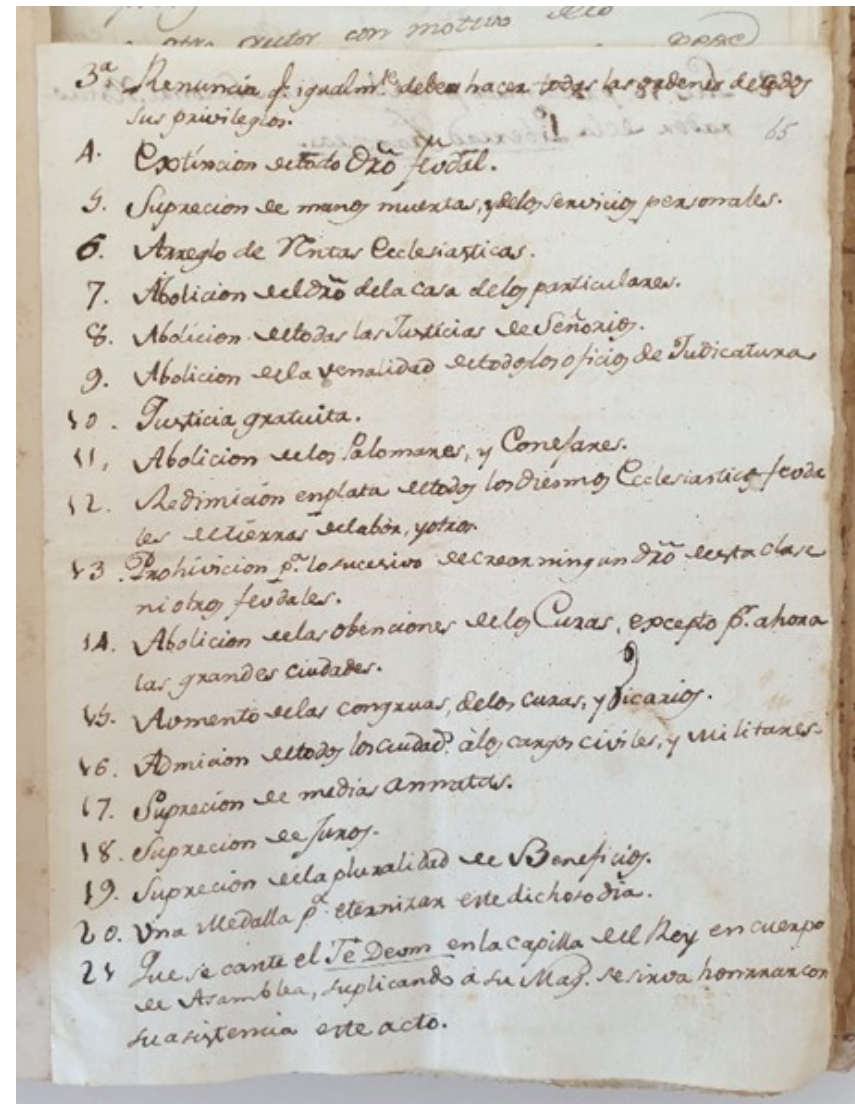 otro orector con motivo dello
3ª Renuncia q.e igualm.te deben hacer todas las ordenes de todos
sus privilegios.
65
4. Extincion de todo dr̃o feudal.
5. Suprecion de manos muertas, y de los servicios personales.
6. Arreglo de Rentas Ecclesiasticas.
7. Abolicion del dr̃o de la casa de los particulares.
8. Abolicion de todas las Justicias de Señorios.
9. Abolicion de la venalidad de todos los oficios de Judicatura
10. Justicia gratuita.
11, Abolicion de los Palomares, y Conejares.
12. Redimicion en plata de todos los diesmos Ecclesiasticos feuda
les de tierras de labor, y otros.
13. Prohivicion p.a lo sucesivo de crear ningun dr̃o de esta clase
ni otros feudales.
14. Abolicion de las obenciones de los Curas, excepto p.r ahora
las grandes ciudades.
15. Aumento de las congruas, de los curas, y Vicarios.
16. Admicion de todos los ciudad.s à los cargos civiles, y Militares.
17. Suprecion de medias annatas.
18. Suprecion de Juros.
19. Suprecion de la pluralidad de Beneficios.
20. Una Medalla p.a eternizar este dichoso dia.
21 Que se cante el Te Deum en la capilla del Rey en cuerpo
de Asamblea, suplicando á su Mag.d se sirva honrrar con
su asistencia este acto.